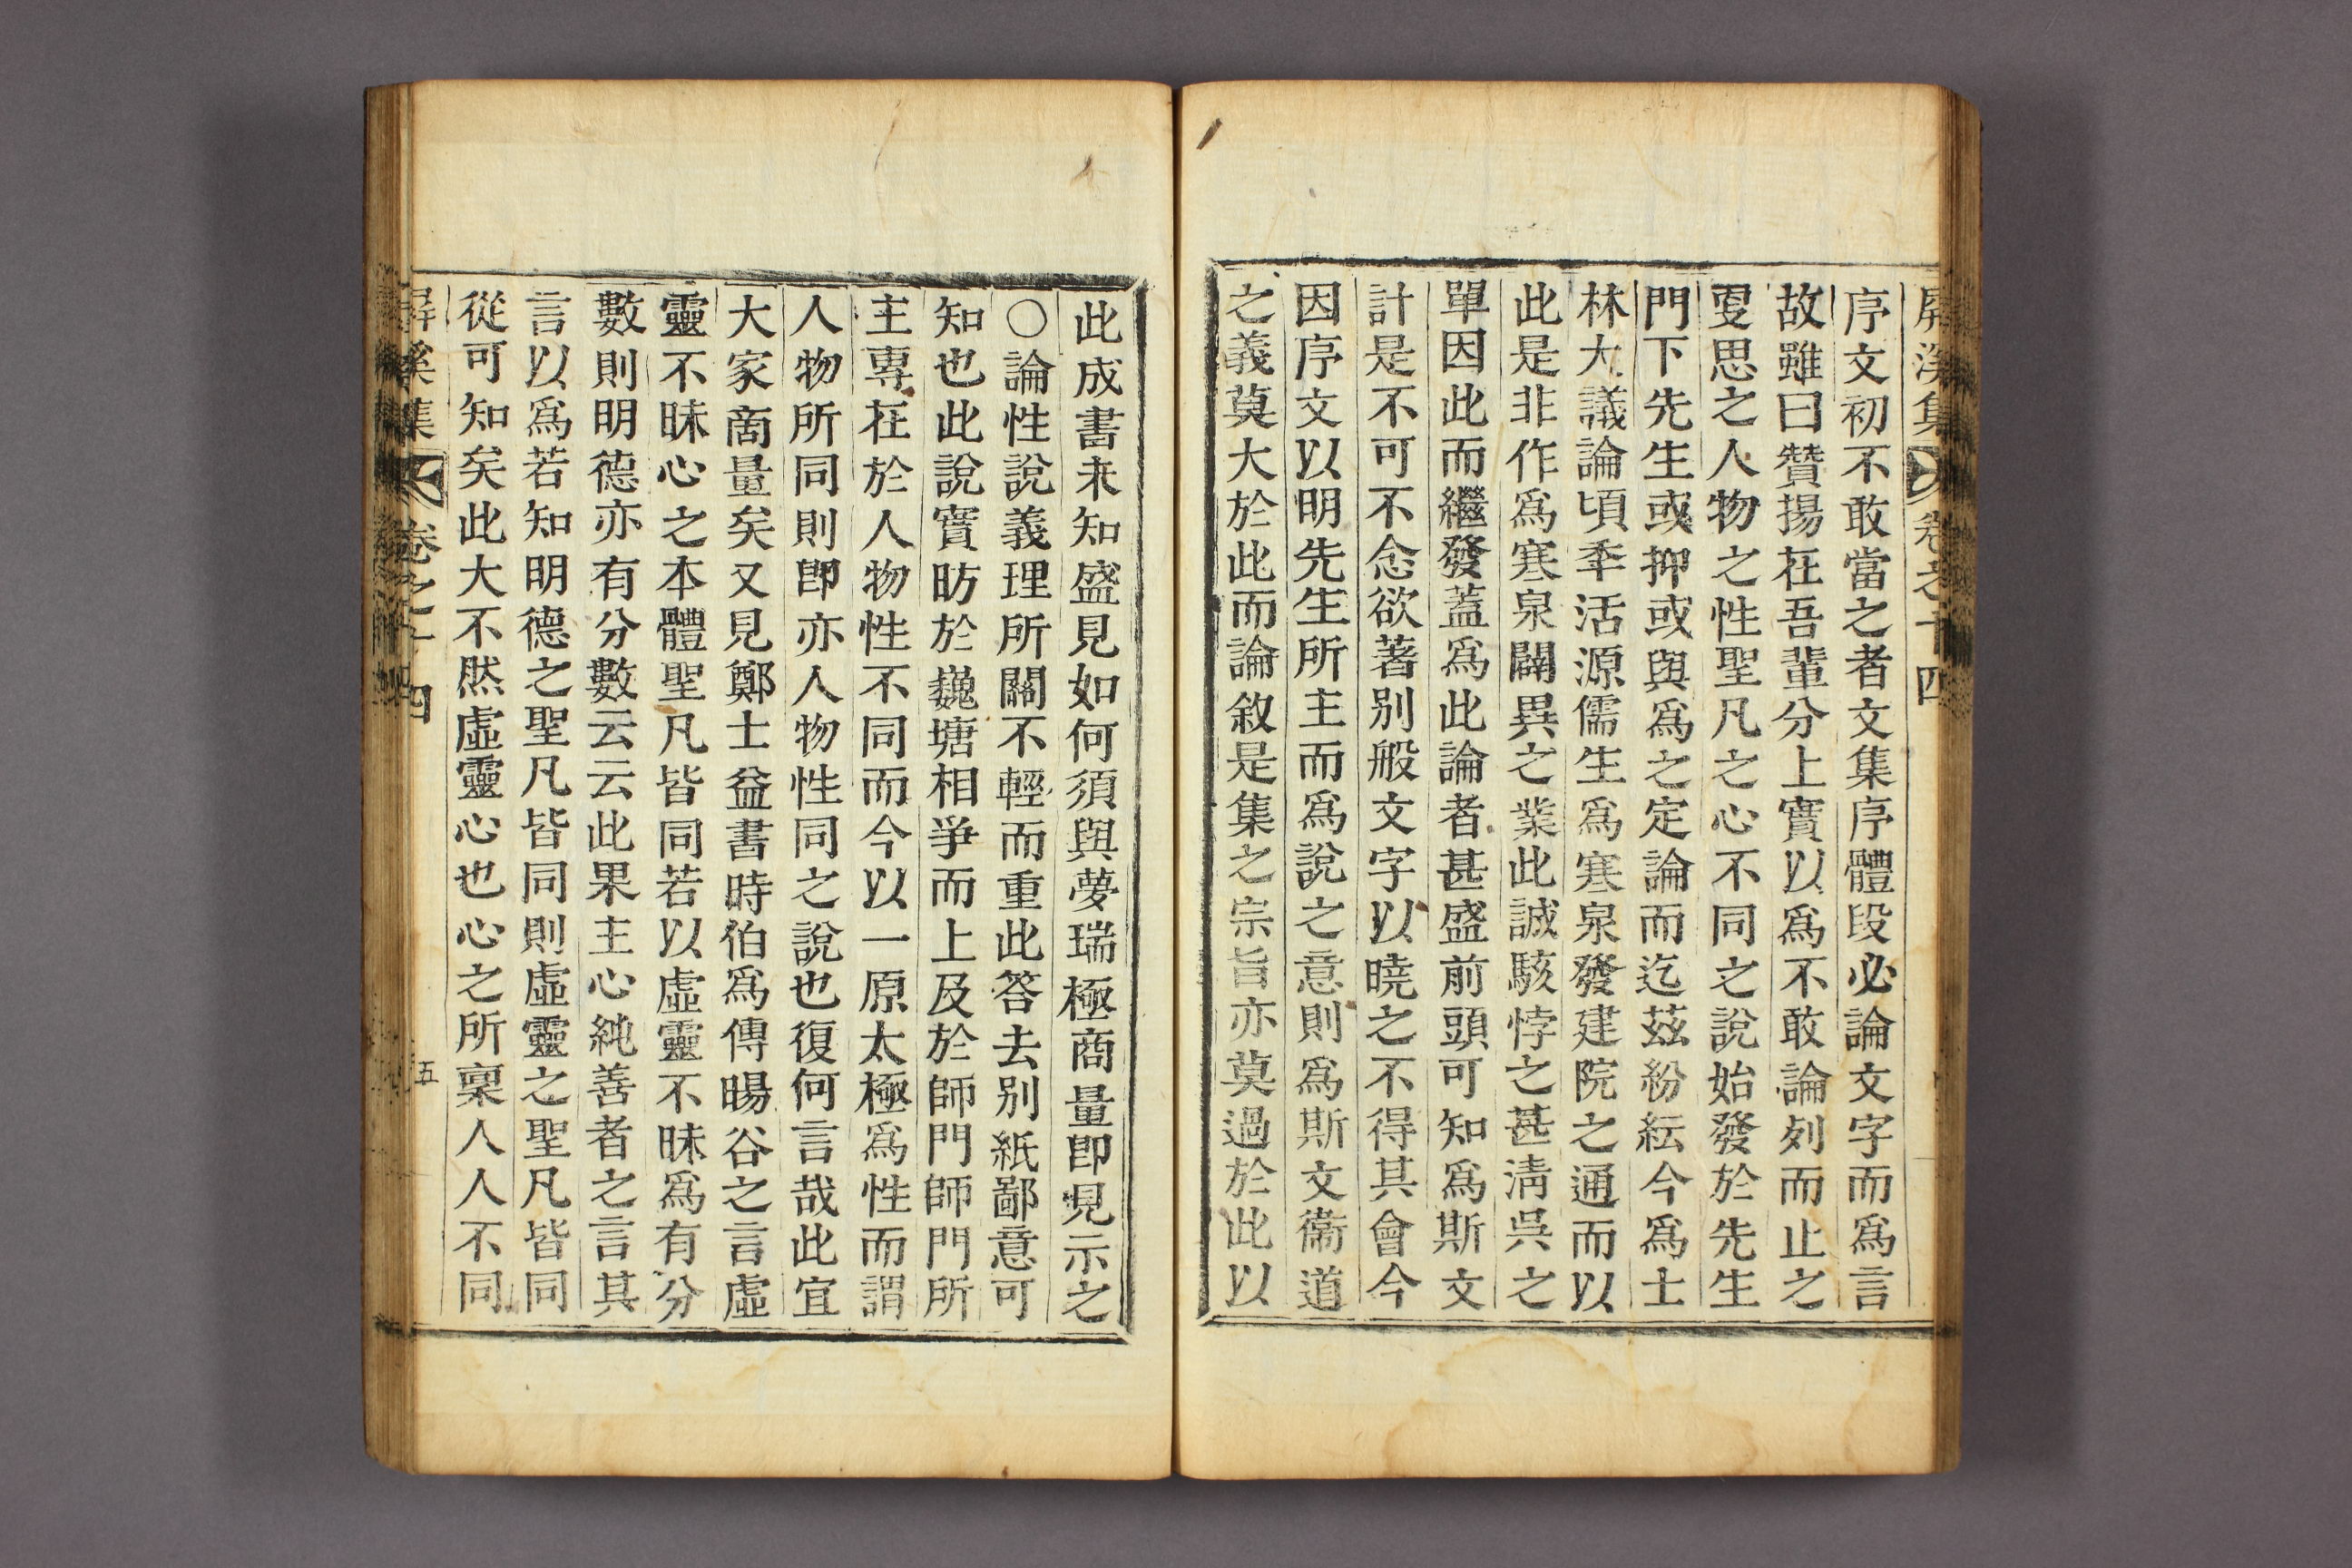 屛溪集 卷之十四
序文初不敢當之者文集序體段必論文字而爲言
故雖曰贊揚在吾輩分上實以爲不敢論列而止之
更思之人物之性聖凡之心不同之說始發於先生
門下先生或抑或與爲之定論而迄茲紛紜今爲士
林大議論頃年活源儒生爲寒泉發建院之通而以
此是非作爲寒泉闢異之業此誠駭悖之甚淸吳之
單因此而繼發蓋爲此論者甚盛前頭可知爲斯文
計是不可不念欲著别般文字以曉之不得其會今
因序文以明先生所主而爲說之意則爲斯文衞道
之義莫大於此而論敘是集之宗旨亦莫過於此以
此成書未知盛見如何須與夢瑞極商量卽見示之
○論性說義理所關不輕而重此答去别紙鄙意可
知也此說實昉於巍塘相爭而上及於師門師門所
主專在於人物性不同而今以一原太極爲性而謂
人物所同則卽亦人物性同之說也復何言哉此宜
大家商量矣又見鄭士益書時伯爲傳暘谷之言虛
靈不昧心之本體聖凡皆同若以虛靈不昧爲有分
數則明德亦有分數云云此果主心純善者之言其
言以爲若知明德之聖凡皆同則虛靈之聖凡皆同
從可知矣此大不然虛靈心也心之所稟人人不同
屛溪集 卷之十四 五